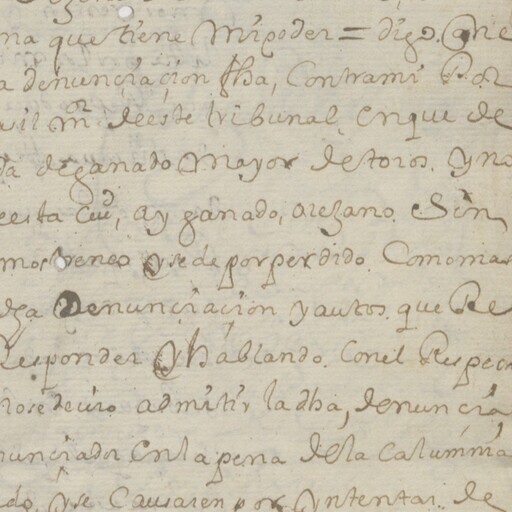 na que tiene Mi poder = digo. Que
a denunçiaçion fha, Contra mi Por
uil mr. de este tribunal en que de
da de ganado Mayor de toros. y no
esta Ciud, ay ganado, orezano Sin
mostrenco y se de por perdido Como mas
dha Denunçiaçion y autos. que Re
Responder Y hablando. Con el Respec
iose deuio admitir la dha, denunçia
nunçiador En la pena de la Calumnia
do, y se Causaren por Yntentar. de